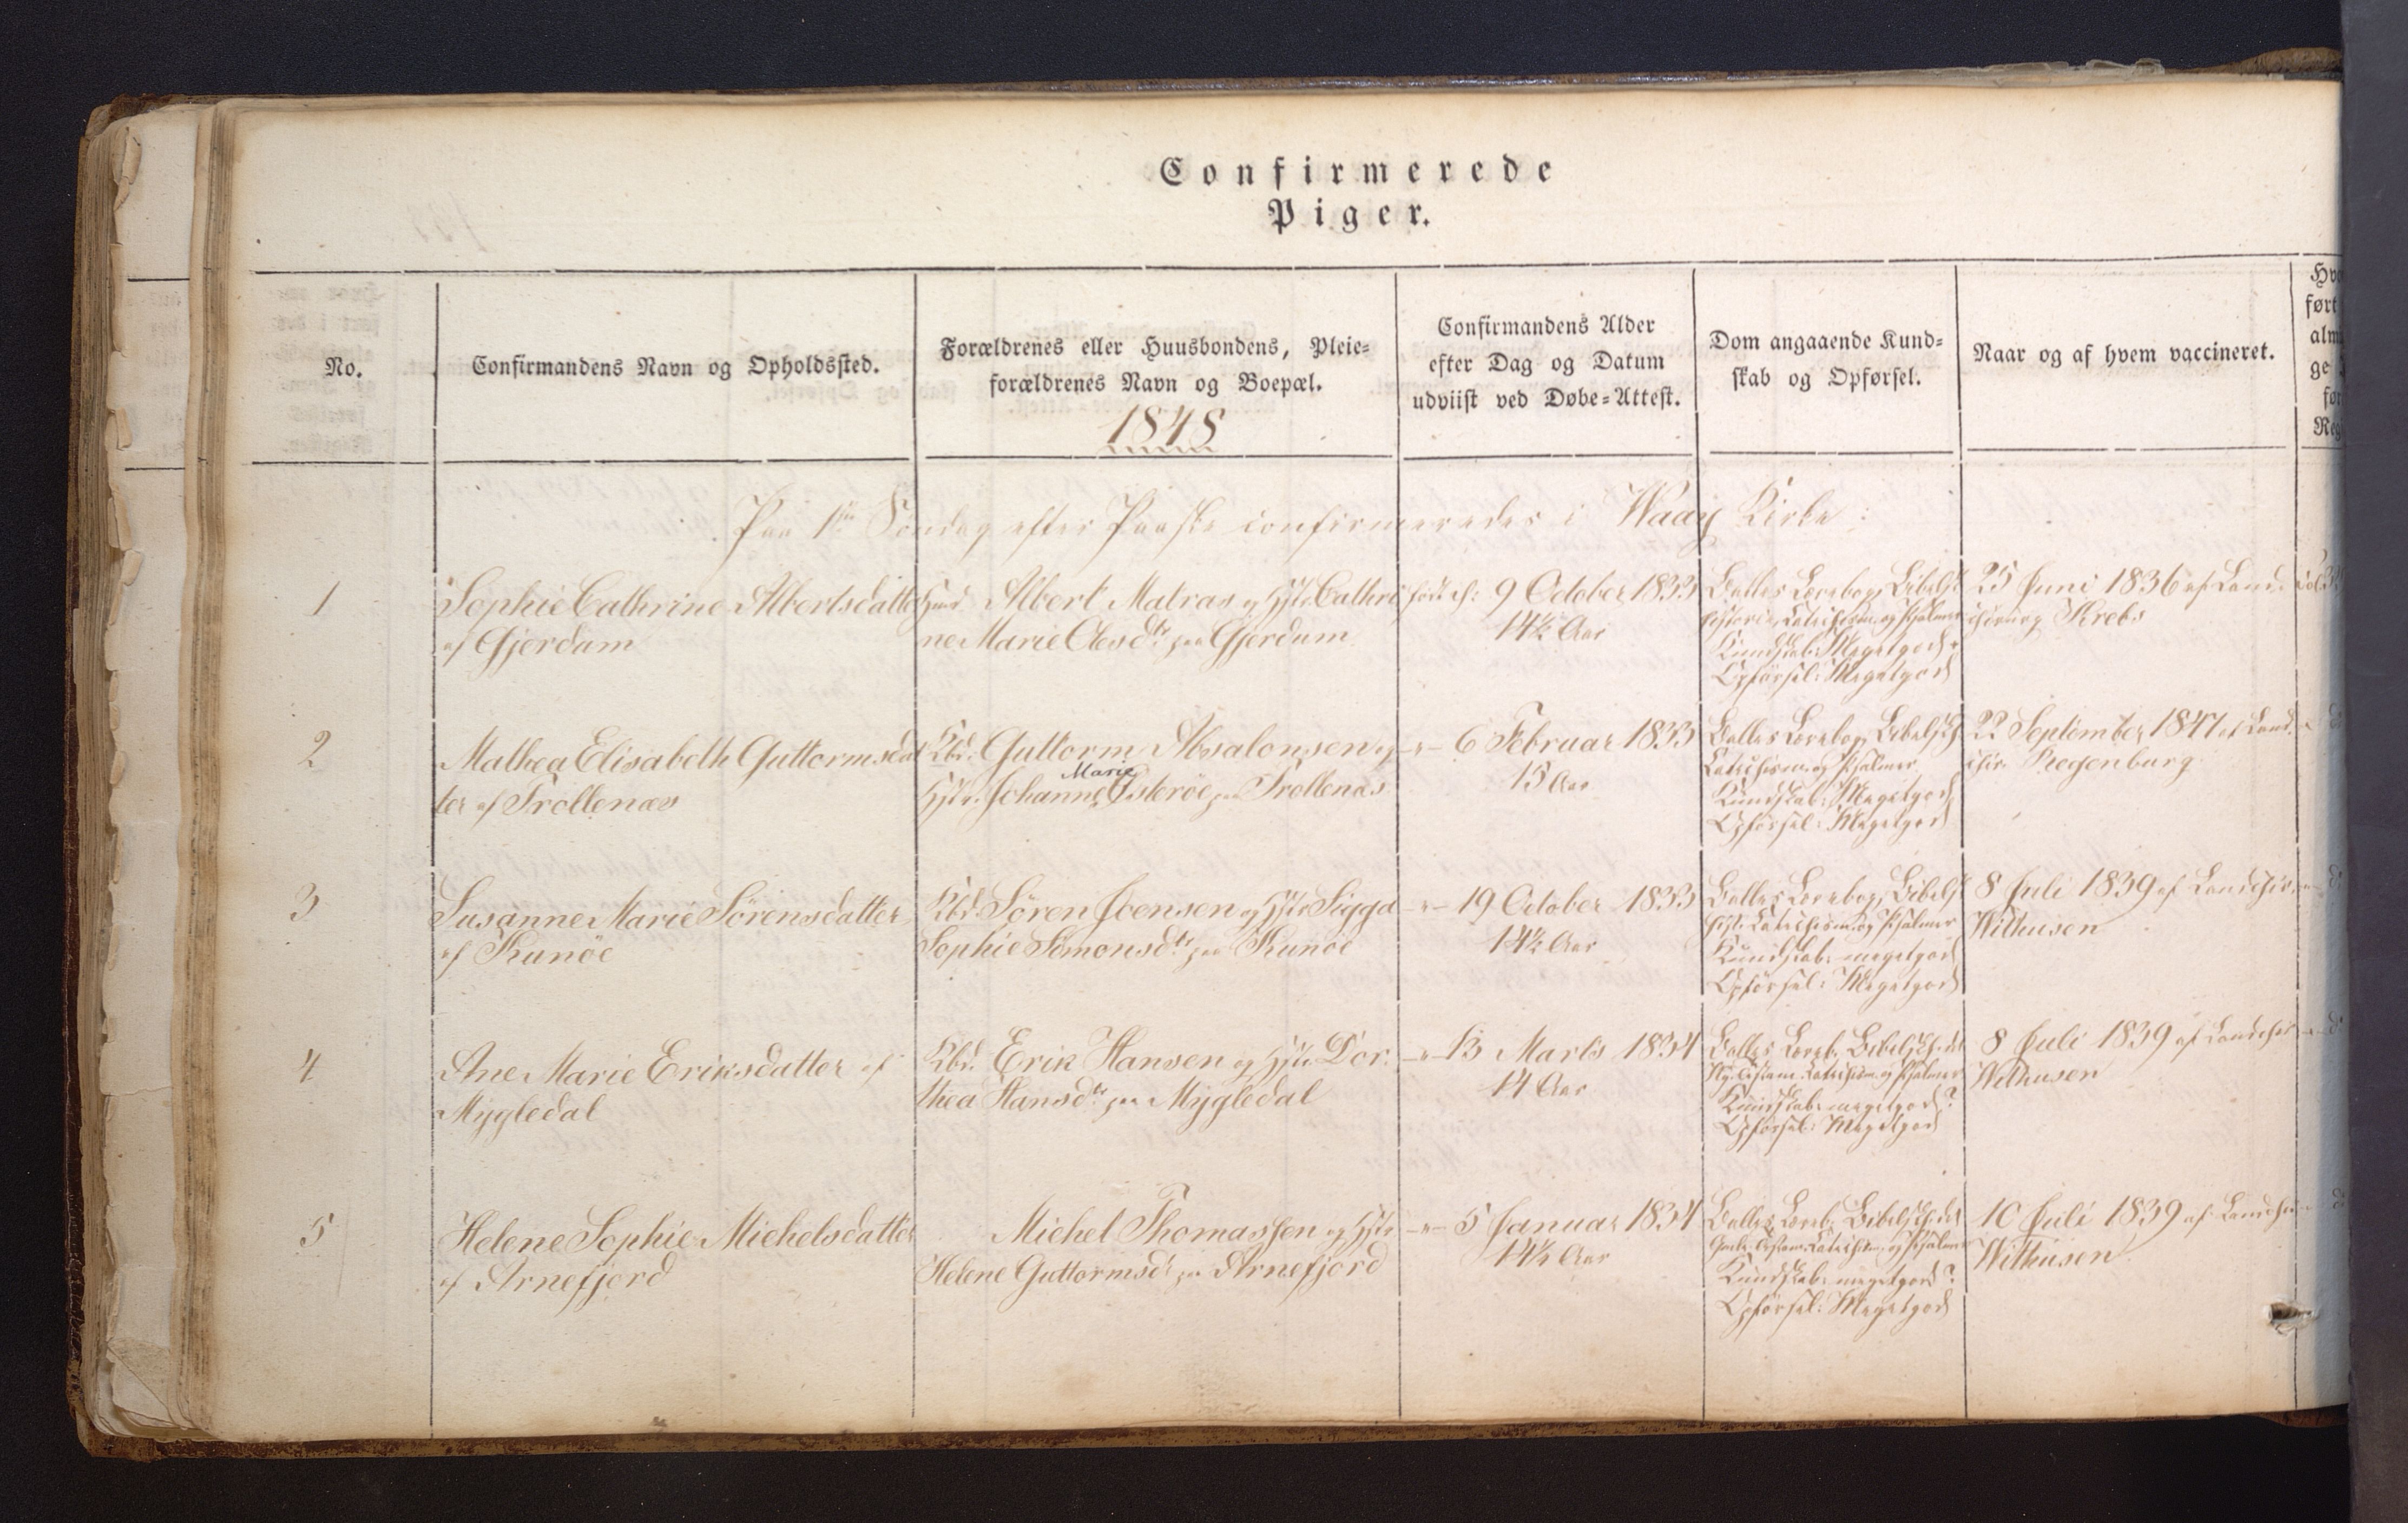 Confirmerede
Piger.
No.
Confirmandens Navn og Opholdssted.
Forældrenes eller Huusbondens, Pleie-
forældrenes Navn og Boepæl.
1848
Confirmandens Alder
efter Dag og Datum
udviist ved Døbe-Attest.
Dom angaaende Kund-
skab og Opførsel.
Naar og af hvem vaccineret.
Paa 1ste Søndag efter Paaske confirmeredes i Waag Kirke:
1
Sophie Cathrine Albertsdatter
af Gjerdum
Albert Matras og Hstr Cathri
ne Marie Olesdtr paa Gjerdum
født d: 9 October 1833
14½ Aar
Balles Lærebog, Bibelsk
Historie, Katechism. og Psalmer
Kundskab: Megetgod
Opførsel: Megetgod
25 Juni 1836 af Land-
chirurg Krebs
2
Mathea Elisabeth Guttormsdat
ter af Trollenæs
Kbd. Guttorm Absalonsen og
Hstr. Johanne Marie Østerøe paa Trollenæs
-"- 6 Februar 1833
15 Aar
Balles Lærebog, Bibelsk
Katechism. og Psalmer
Kundskab: Megetgod
Opførsel: Megetgod
22 September 1847 af Land-
chir. Regenburg
3
Susanne Marie Sörensdatter
af Kunöe
Kbd. Sören Joensen og Hstr Sigga
Sophie Simonsdtr paa Kunöe
-"- 19 October 1833
14½ Aar
Balles Lærebog, Bibelsk
Hist. Katechism. og Psalmer
Kundskab: megetgod
Opførsel: Megetgod
8 Juli 1839 af Landchir.
Withusen
4
Ane Marie Eriksdatter af
Mygledal
Kbd. Erik Hansen og Hstr. Dor-
thea Hansdtr paa Mygledal
-"- 13 Marts 1834
14 Aar
Balles Læreb. Bibelsk
Ny Testam. Katechism. og Psalmer
Kundskab: megetgod?
Opførsel: Megetgod
8 Juli 1839 af Landchir
Withusen
5
Helene Sophie Michelsdatter
af Arnefjord
Michel Thomassen og Hstr
Helene Guttormsdtr paa Arnefjord
-"- 5 Januar 1834
14¼ Aar
Balles Læreb. Bibelsk
Katechism. og Psalmer
Kundskab: megetgod?
Opførsel: Megetgod
10 Juli 1839 af Landchir
Withusen